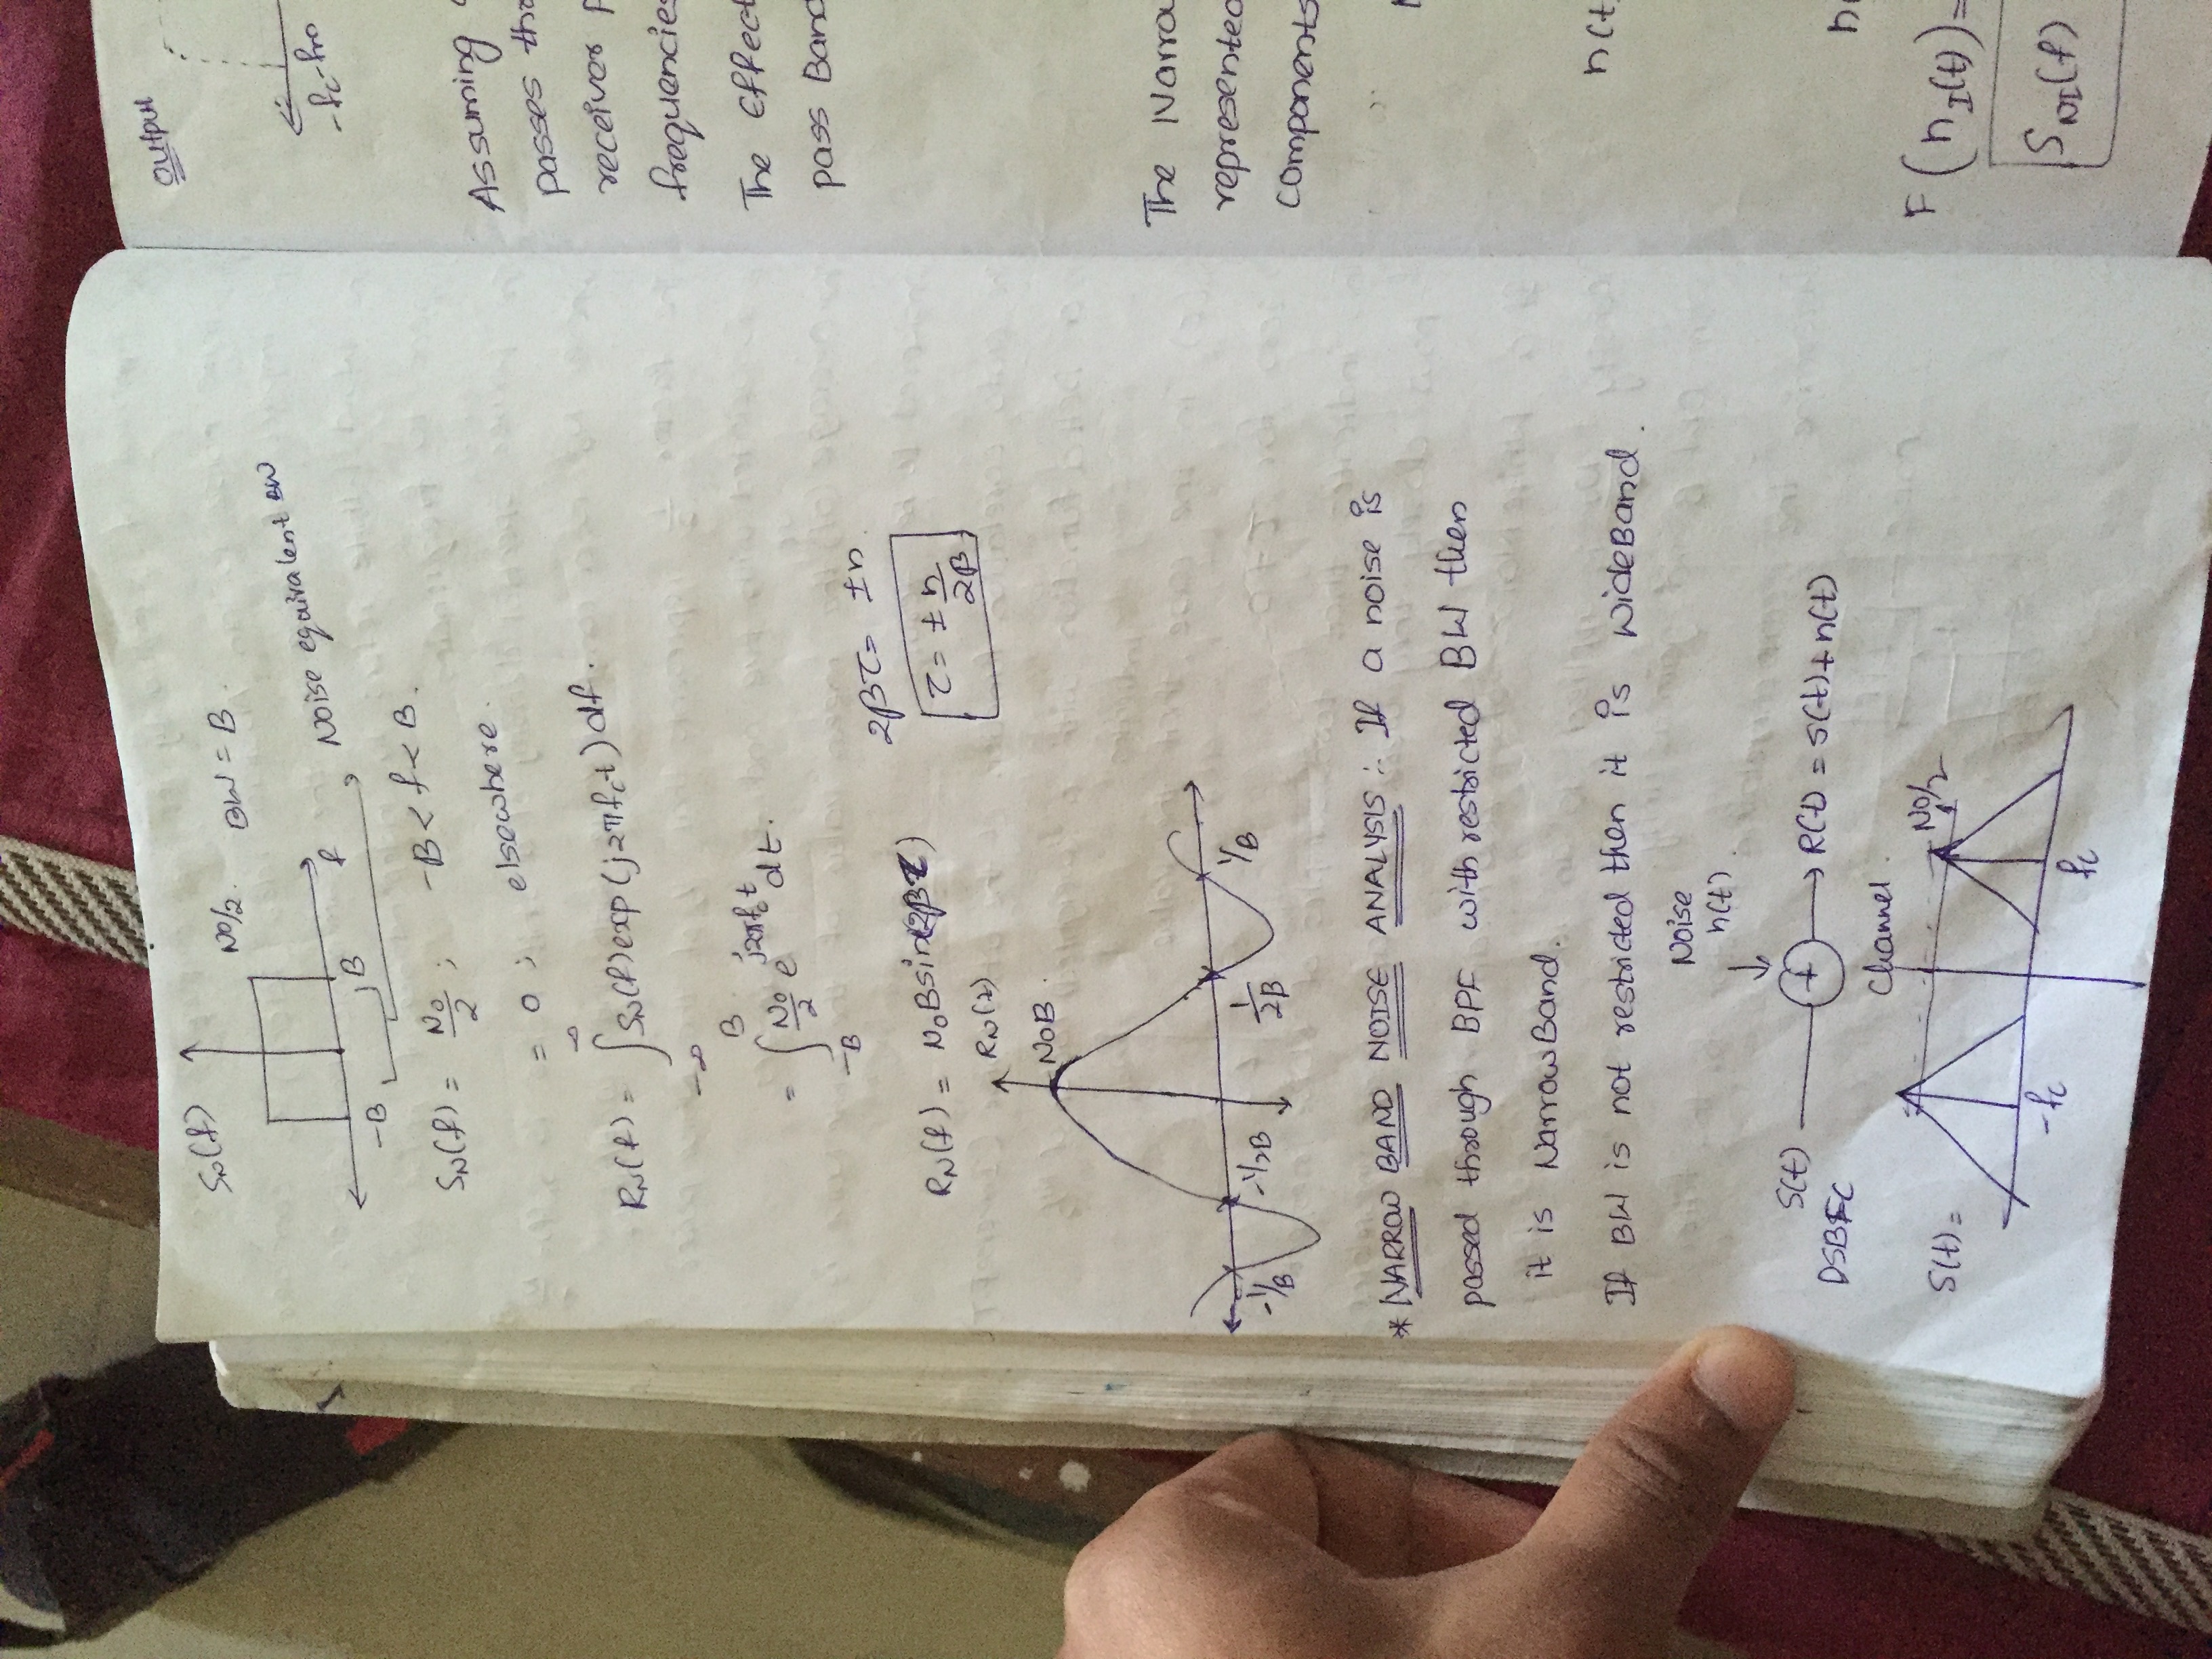 SN(f)
N0/2. BW = B.
-B B f
Noise equivalent BW
SN(f) = N0/2 ; -B < f < B.
= 0 ; elsewhere.
RN(f) = ∫_{-∞}^{∞} SN(f) exp (j2πfct) df.
= ∫_{-B}^{B} N0/2 e^{j2πfct} dt.
2βτ = ±n.
RN(f) = N0Bsin(2βτ)
τ = ± n/2β
RN(τ)
N0B.
-1/B -1/2B 1/2B 1/B
* NARROW BAND NOISE ANALYSIS :- If a noise is
passed through BPF with restricted BW then
it is NarrowBand.
If BW is not restricted then it is WideBand.
Noise
n(t).
S(t) + R(t) = s(t)+n(t)
DSBFC
Channel.
S(t) = N0/2
-fc fc
output
-fc-fm
Assuming
passes
receiver
frequencies
The Effect
pass Band
The
represented
components
n(t)
F(nI(t)) =
SNI(f)